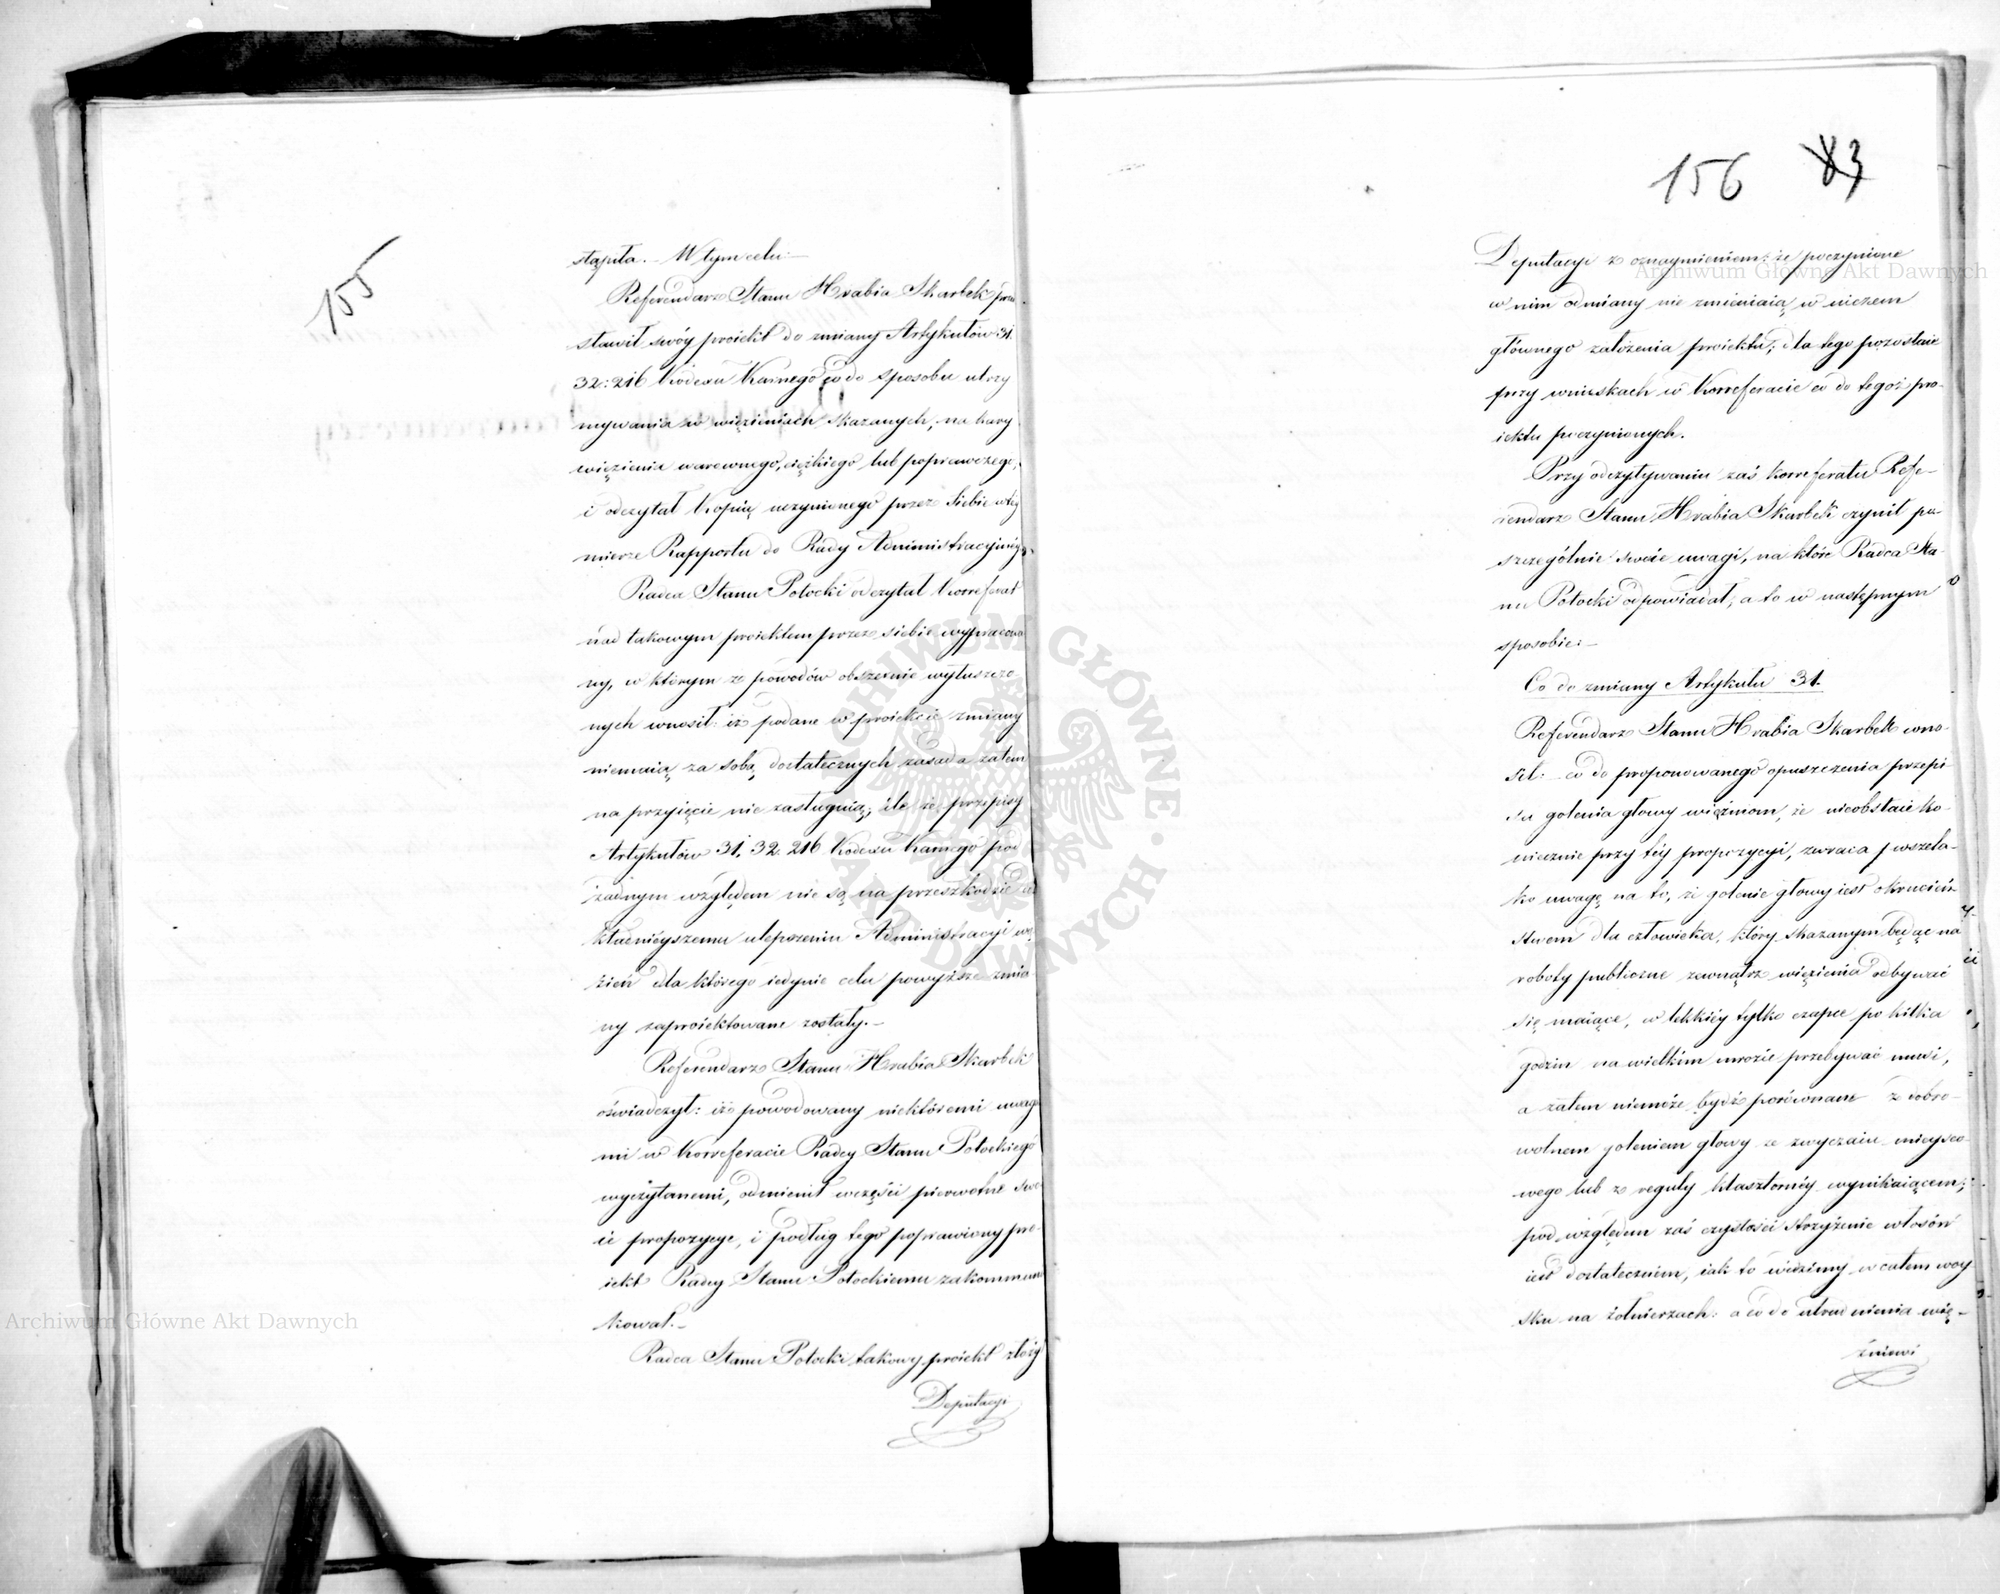 155
stąpiła. – W tym celu: –
Referendarz Stanu Hrabia Skarbek prze
stawił swóy proiekt do zmiany Artykułów 31.
32: 216 Kodexu Karnego co do sposobu utrzy
mywania w więzieniach skazanych, na kary
więzienia warownego, ciężkiego lub poprawczego,
i odczytał Kopią uczynionego przez siebie w tey
mierze Rapportu do Rady Administracyiney.
Radca Stanu Potocki odczytał Korreferat
nad takowym proiektem przez siebie wypracowa
ny, w którym z powodów obszernie wyłuszczo
nych wnosił: iż podane w proiekcie zmiany
niemaią za sobą dostatecznych zasad a zatem
na przyięcie nie zasługuią; ile że przepisy
Artykułów 31, 32. 216 Kodexu Karnego pod
żadnym względem nie są na przeszkodzie
kładnieyszemu ulepszeniu Administracyi wię
zień dla którego iedynie celu powyższe zmia
ny zaproiektowane zostały. –
Referendarz Stanu Hrabia Skarbek
oświadczył: iż powodowany niektóremi uwaga
mi w Korreferacie Radcy Stanu Potockiego
wyczytanemi, odmienił w części pierwotne swo
ie propozycye, i podług tego poprawiony pro
iekt Radcy Stanu Potockiemu zakommuni
kował. –
Radca Stanu Potocki takowy proiekt złoży
Deputacyi
156 83
Deputacyi z oznaymieniem: że poczynione
w nim odmiany nie zmieniaią w niczem
głównego założenia proiektu; dla tego pozostaie
przy wnioskach w Korreferacie co do tegoż pro-
iektu poczynionych.
Przy odczytywaniu zaś Korreferatu Refe-
rendarz Stanu Hrabia Skarbek czynił po-
szczególnie swoie uwagi, na które Radca Sta-
nu Potocki odpowiadał, a to w następnym
sposobie: –
Co do zmiany Artykułu 31.
Referendarz Stanu Hrabia Skarbek wno-
sił: – co do proponowanego opuszczenia przepi
su golenia głowy więźniom, że nieobstaie ko-
niecznie przy téy propozycyi, zwraca wszela-
ko uwagę na to, że golenie głowy iest okrucień-
stwem dla człowieka, który skazanym będąc na
roboty publiczne zewnątrz więzienia odbywać
się maiące, w lekkiéy tylko czapce po kilka
godzin na wielkim mrozie przebywać musi,
a zatem niemoże bydź porównane z dobro-
wolnem goleniem głowy ze zwyczaiu mieysco-
wego lub z reguły klasztornéy wynikaiącem;
pod względem zaś czystości strzyżenie włosów
iest dostatecznem, iak to widzimy w całem woy
sku na żołnierzach: a co do utrudnienia wię-
źniowi
Archiwum Główne Akt Dawnych
Archiwum Główne Akt Dawnych
ARCHIWUM GŁÓWNE AKT DAWNYCH